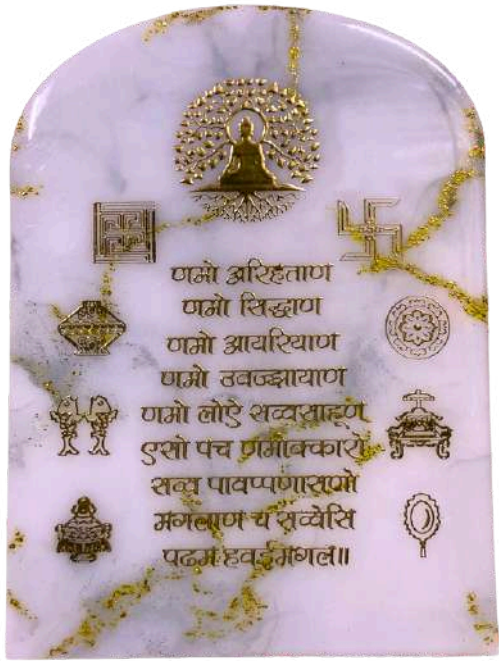 णमो अरिहताण
णमो सिद्धाण
णमो आयरियाण
णमो उवज्झायाण
णमो लोऐ सव्वसाहूण
एसो पच णमोक्कारो
सव्व पावप्पणासणो
मगलाण च सव्वेसि
पढम हवई मगल॥